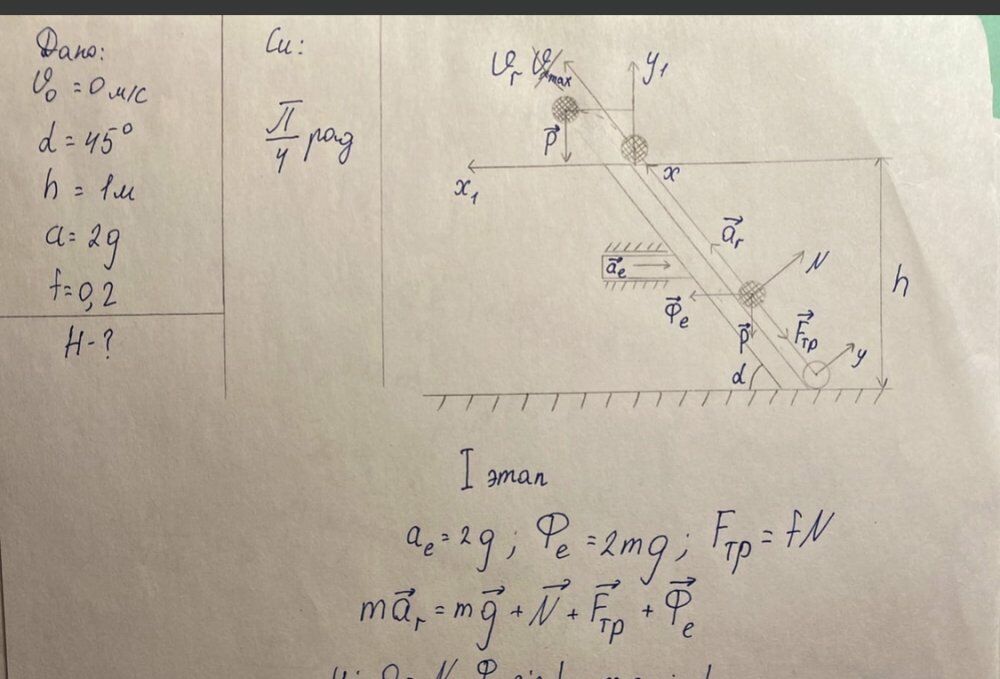 Дано:
V₀ = 0 м/с
d = 45°
h = 1м
a = 2g
f = 0,2
H - ?
Си:
π/4 рад
Vr
max
y₁
P⃗
x₁
x
a⃗r
a⃗e
N
Φ⃗e
P⃗
F⃗тр
h
d
y
I этап
ae = 2g ; Φe = 2mg ; Fтр = fN
ma⃗r = mg⃗ + N⃗ + F⃗тр + Φ⃗e